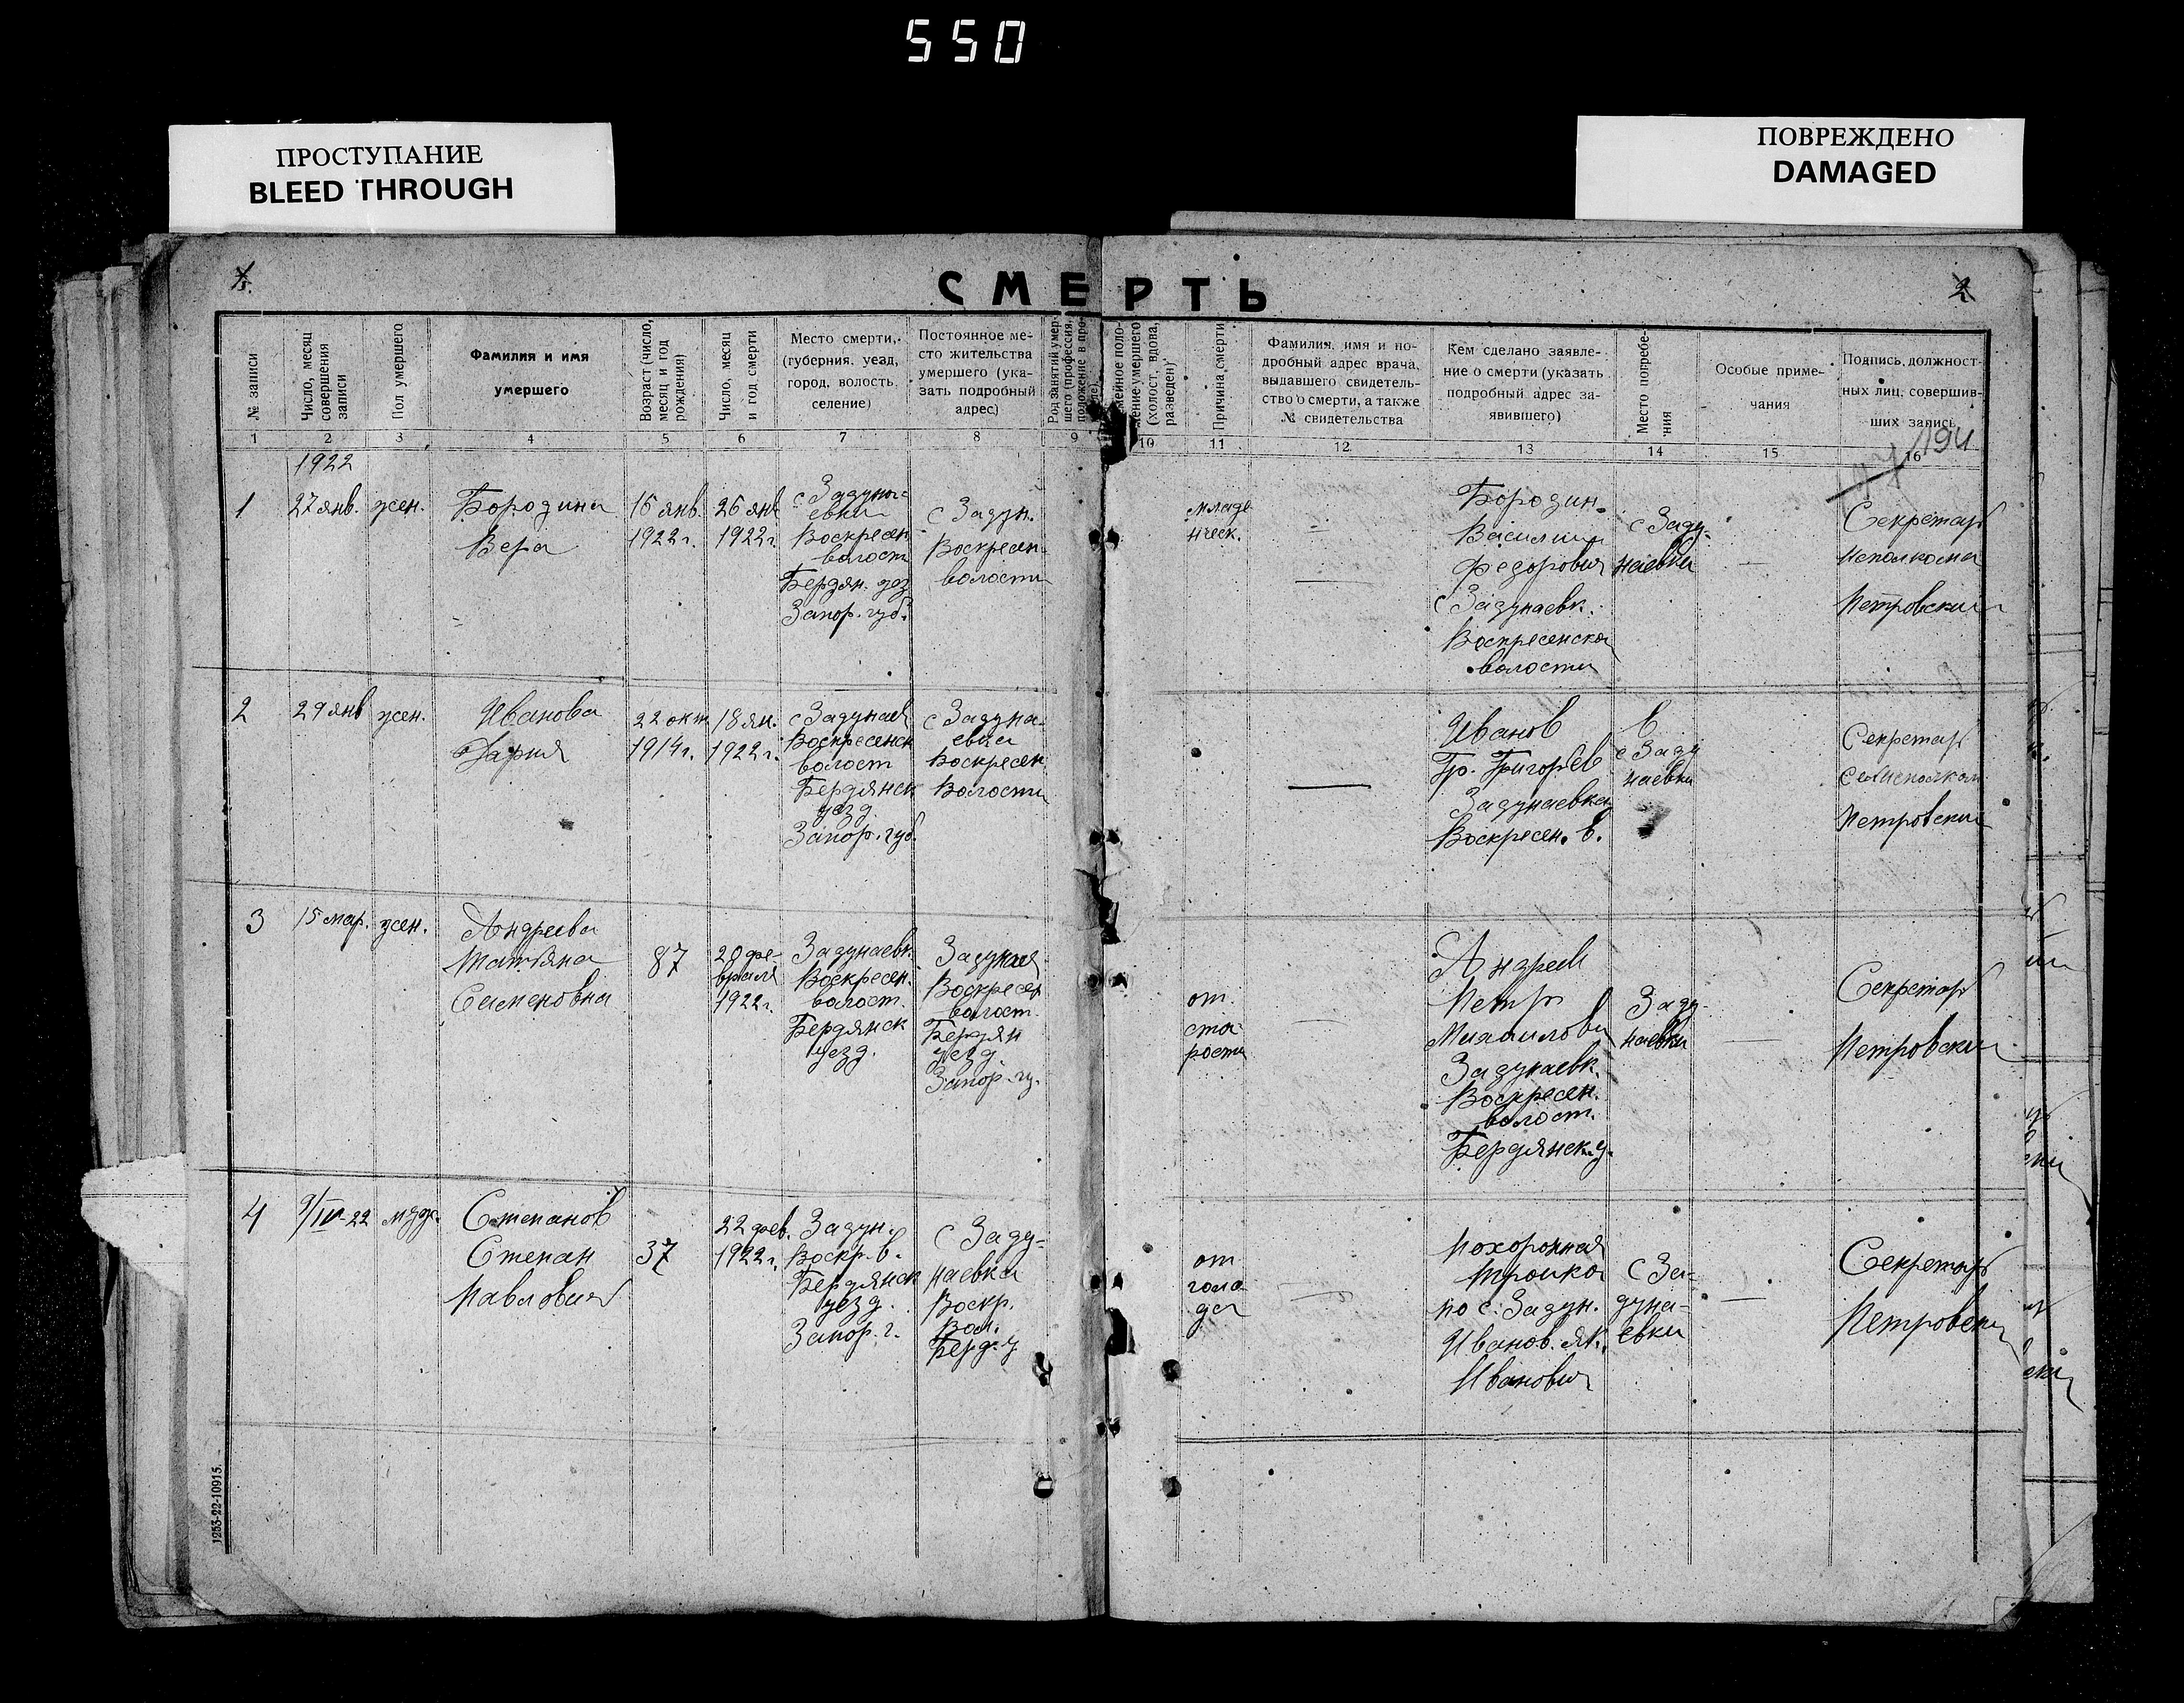 550
ПРОСТУПАНИЕ
BLEED THROUGH
ПОВРЕЖДЕНО
DAMAGED
СМЕРТЬ
2
№ записи
Число, месяц
совершения
записи
Пол умершего
Фамилия и имя
умершего
Возраст (число,
месяц и год
рождения)
Число, месяц
и год смерти
Место смерти,
(губерния, уезд,
город, волость,
селение)
Постоянное ме-
сто жительства
умершего (ука-
зать подробный
адрес)
Род занятий умер-
шего (профессия,
положение в про-
(холост, вдова,
разведен)
Причина смерти
Фамилия, имя и по-
дробный адрес врача,
выдавшего свидетель-
ство о смерти, а также
№ свидетельства
Кем сделано заявле-
ние о смерти (указать
подробный адрес за-
явившего)
Место погребе-
ния
Особые приме-
чания
Подпись, должност-
ных лиц, совершив-
ших запись
1 2 3 4 5 6 7 8 9 10 11 12 13 14 15 16
194
1922
1
27 янв.
жен.
Бородина
Вера
16 янв.
1922 г.
26 янв
1922 г.
с Задуна-
евки
Воскресен
волост
Бердян. уез
Запор. губ.
с Задун.
Воскресен-
волости
младе
нческ.
—
Бородин
Василий
Федорович
с Задунаевк.
Воскресенской
волости
с Заду-
наевки
—
Секретарь
Исполкома
Петровский
2
29 янв
жен.
Иванова
Дария
22 окт
1914 г.
18 ян.
1922 г.
с Задунаев
Воскресенск
волост
Бердянск
уезд.
Запор. губ.
с Задуна-
евка
Воскресен
Волости
—
Иванов
Гр. Григорьев
Задунаевка
Воскресен. в.
В
с Заду
наевки
Секретарь
Петровский
3
15 мар.
жен.
Андреева
Татьяна
Семеновна
87
20 фе-
враля
1922 г.
Задунаевк.
Воскресен.
волост.
Бердянск
уезд.
Задунаев
Воскресен
волост.
Бердян
уезд.
Запор. гу.
от
ста-
рости
—
Андреев
Петр
Михайлович
Задунаевк.
Воскресен.
волост.
Бердянск. у.
Заду-
наевки
—
Секретарь
Петровский
4
9/IV-22
муж.
Степанов
Степан
Павлович
37
22 фев.
1922 г.
Задун.
Воскр. в.
Бердянск
уезд.
Запор. г.
с Заду-
наевка
Воскр.
Вол.
Берд. у.
от
голо-
да
—
Похоронная
тройка
по с. Задун.
Иванов. Як.
Иванович
с За-
дуна-
евки
—
Секретарь
Петровский
1253-22-10915.